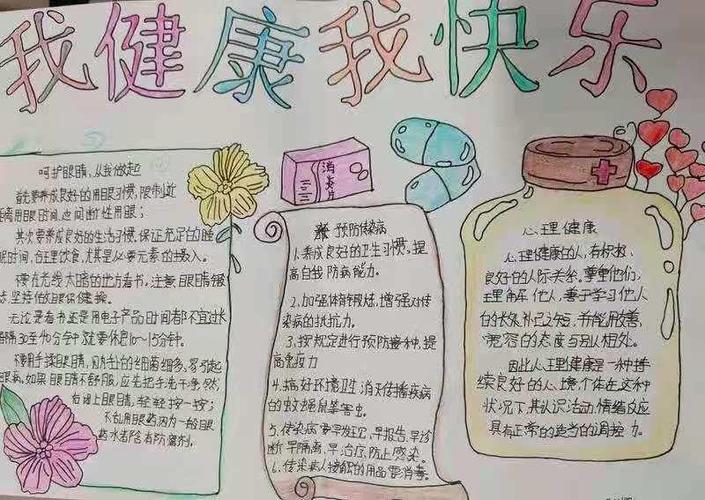 我健康我快乐
呵护眼睛,从我做起
首先要养成良好的用眼习惯,限制近
距离用眼时间,定间断性用眼;
其次要养成良好的生活习惯,保证充足的睡
眠时间,合理饮食,尤其是必要元素的摄入。
不要在光线太暗的地方看书,注意眼睛
坚持做眼保健操。
无论是看书还是用电子产品时间都不宜过长
每隔30至40分钟就要休息10~15分钟。
不要用手揉眼睛,因为手上的细菌很多,容易引起
眼病,如果眼睛不舒服,应先把手洗干净,然
后闭上眼睛,轻轻按一按;
不乱用眼药因为一般眼
药水都含有防腐剂。
消炎片
预防传染病
1.养成良好的卫生习惯,提
高自我防病能力。
2.加强体育锻炼,增强对传
染病的抵抗力。
3.按规定进行预防接种,提
高免疫力
4.搞好环境卫生 消灭传播疾病
的蚊蝇鼠等害虫。
5.传染病要早发现,早报告,早诊
断 早隔离,早治疗,防止感染。
6.传染病人接触的用品要消毒。
心理健康
心理健康的人,有积极、
良好的人际关系。尊重他们,
理解他人,善于学习他人
的长处补己之短,并能用友善、
宽容的态度与别人相处。
因此心理健康是一种持
续良好的心境,个体在这种
状况下,其认识活动,情绪反应
具有正常的适当的调控力。